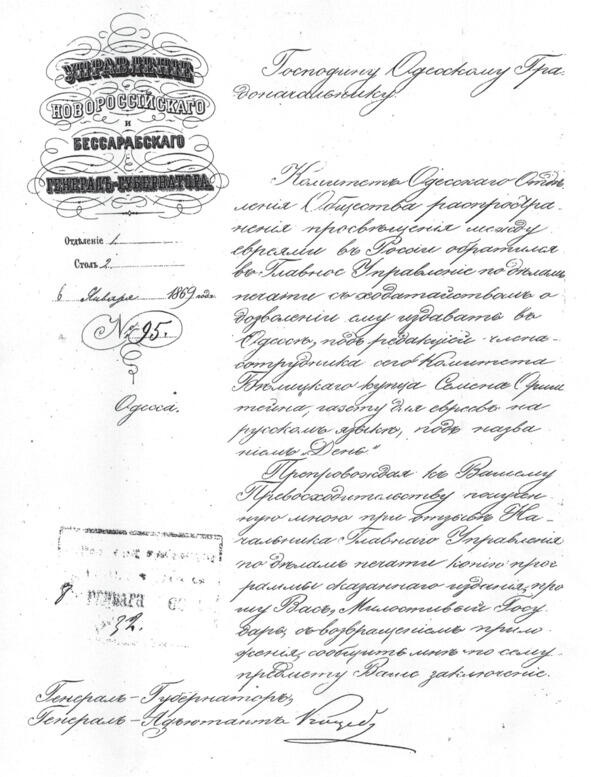 УПРАВЛЕНІЕ
НОВОРОССІЙСКАГО
и
БЕССАРАБСКАГО
ГЕНЕРАЛЪ-ГУБЕРНАТОРА.
Отдѣленіе 1.
Столъ 2.
6 Января 1869 года
№ 95.
Одесса.
Господину Одесскому Гра-
доначальнику.
Комитетъ Одесскаго Отдѣ-
ленія Общества распростра-
ненія просвѣщенія между
евреями въ Россіи обратился
въ Главное Управленіе по дѣламъ
печати съ ходатайствомъ о
дозволеніи ему издавать въ
Одессѣ, подъ редакціей члена-
сотрудника сего Комитета
купца Семена Орнш-
тейна, газету для евреевъ на
русскомъ языкѣ, подъ назва-
ніемъ „День“
Препровождая къ Вашему
Превосходительству получен-
ную мною при отзывѣ На-
чальника Главнаго Управленія
по дѣламъ печати копію прог-
раммы сказаннаго изданія, про-
шу Васъ, Милостивый Госу-
дарь, съ возвращеніемъ прило-
женія, сообщить мнѣ по сему
предмету Ваше заключеніе.
Генералъ-Губернаторъ,
Генералъ-Адъютантъ Коцебу
8
32.